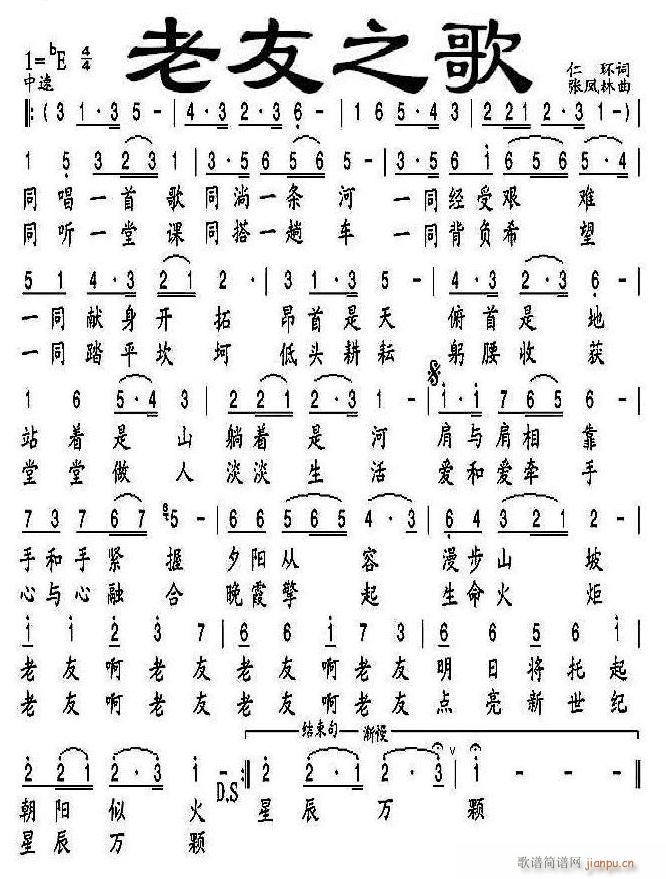 老友之歌
1=ᵇE 4/4
中速
仁 环词
张凤林曲
‖:(3 1·3 5 - | 2·3 2 1 6 - | 1 6 5·4 3 | 2 2 1 2·3 1 -) |
1 5 3 2 3 1 | 3·2 1 3 5 6 5 | 3·5 6 i 6 5 6 5·4 |
同唱一首歌 同淌一条河 一同经受艰难
同听一堂课 同搭一趟车 一同背负希望
5 1 4·3 2 1 2· | 3·1 3 5 | 2·3 2 3 6 - |
一同献身开拓 昂首是天 俯首是地
一同踏平坎坷 低头耕耘 躬腰收获
1 6 5·4 3 | 2 2 1 2·3 1 - | i·i 7 6 5 |
站着是山 躺着是河 肩与肩相靠
堂堂做人 淡淡生活 爱和爱牵手
7 3 7 6 7 5 - | 6 6 5 6 5 4·3 | 6·4 3 2 1 2 |
手和手紧握 夕阳从容 漫步山坡
心与心融合 晚霞擎起 生命火炬
i i 2 3 7 | 6 6 i 7 3 | 6 6 5 6 i |
老友啊老友 老友啊老友 明日将托起
老友啊老友 老友啊老友 点亮新世纪
结束句 渐慢
2 2 1 2·3 1 - :‖ 2 2 1 2·3 | i - - - ‖
D.S
朝阳似火 星辰万颗
星辰万颗
歌谱简谱网 jianpu.cn